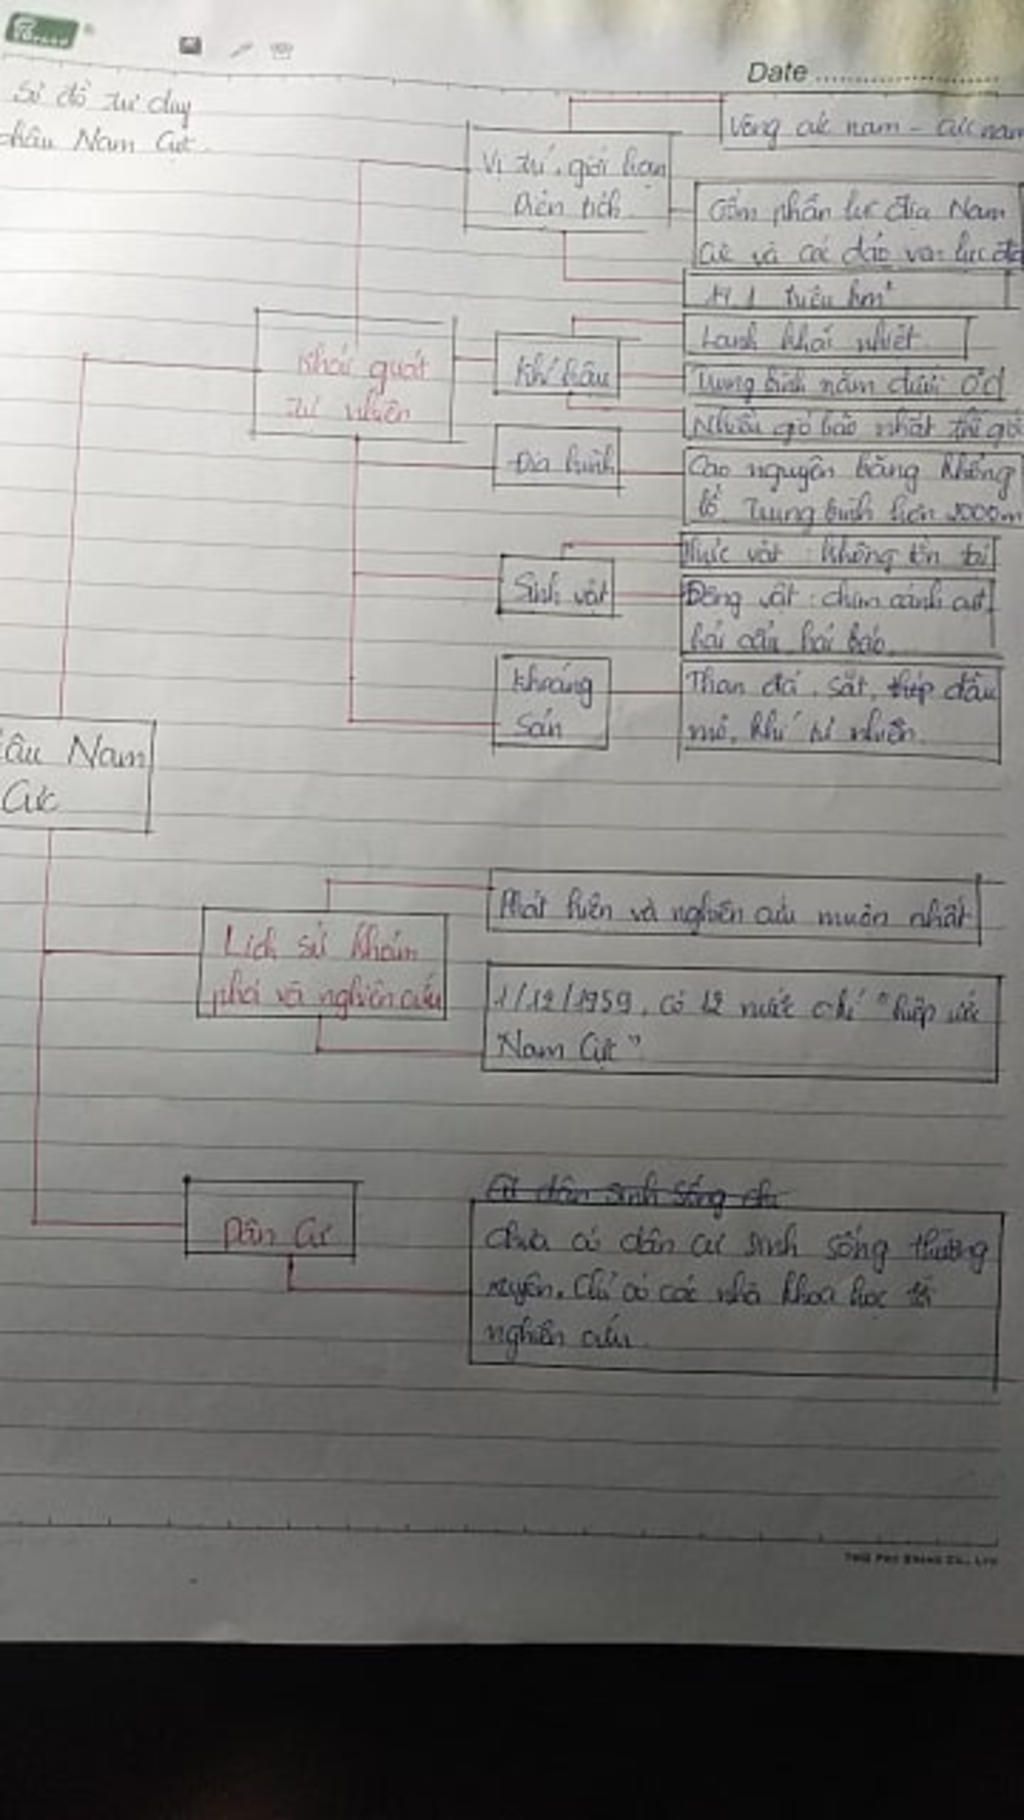 Date
Sơ đồ tư duy
châu Nam Cực.
Vòng cực nam - cực nam
Vị trí, giới hạn
Diện tích
Gồm phần lục địa Nam
Cực và các đảo ven lục đị
14,1 triệu km²
Khái quát
tự nhiên
Khí hậu
Lạnh khắc nhiệt
Trung bình năm dưới 0°C
Nhiều gió bão nhất thế giới
Địa hình
Cao nguyên băng khổng
lồ. Trung bình hơn 2000m
Sinh vật
Thực vật: không tồn tại
Động vật: chim cánh cụt
hải cẩu, hải báo.
Khoáng
sản
Than đá, sắt, thép dầu
mỏ, khí tự nhiên.
âu Nam
Cực
Lịch sử khám
phá và nghiên cứu
Phát hiện và nghiên cứu muộn nhất
1/12/1959, có 12 nước chí "hiệp ước
Nam Cực"
Dân Cư
Chưa có dân cư sinh sống thường
xuyên. Chỉ có các nhà khoa học tới
nghiên cứu.